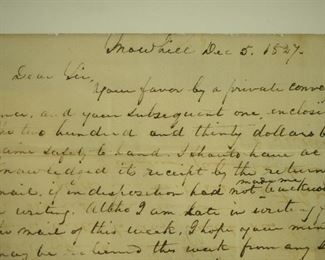 Snow Hill Dec 5. 1827.
Dear Sir,
Your favor by a private conve
and your subsequent one, enclosi
two hundred and thirty dollars
came safely to hand. I should have ac
knowledged its receipt by the return
mail, if indisposition had not made me
writing. Altho I am late in
mail of this week, I hope your
may be relieved this week from any